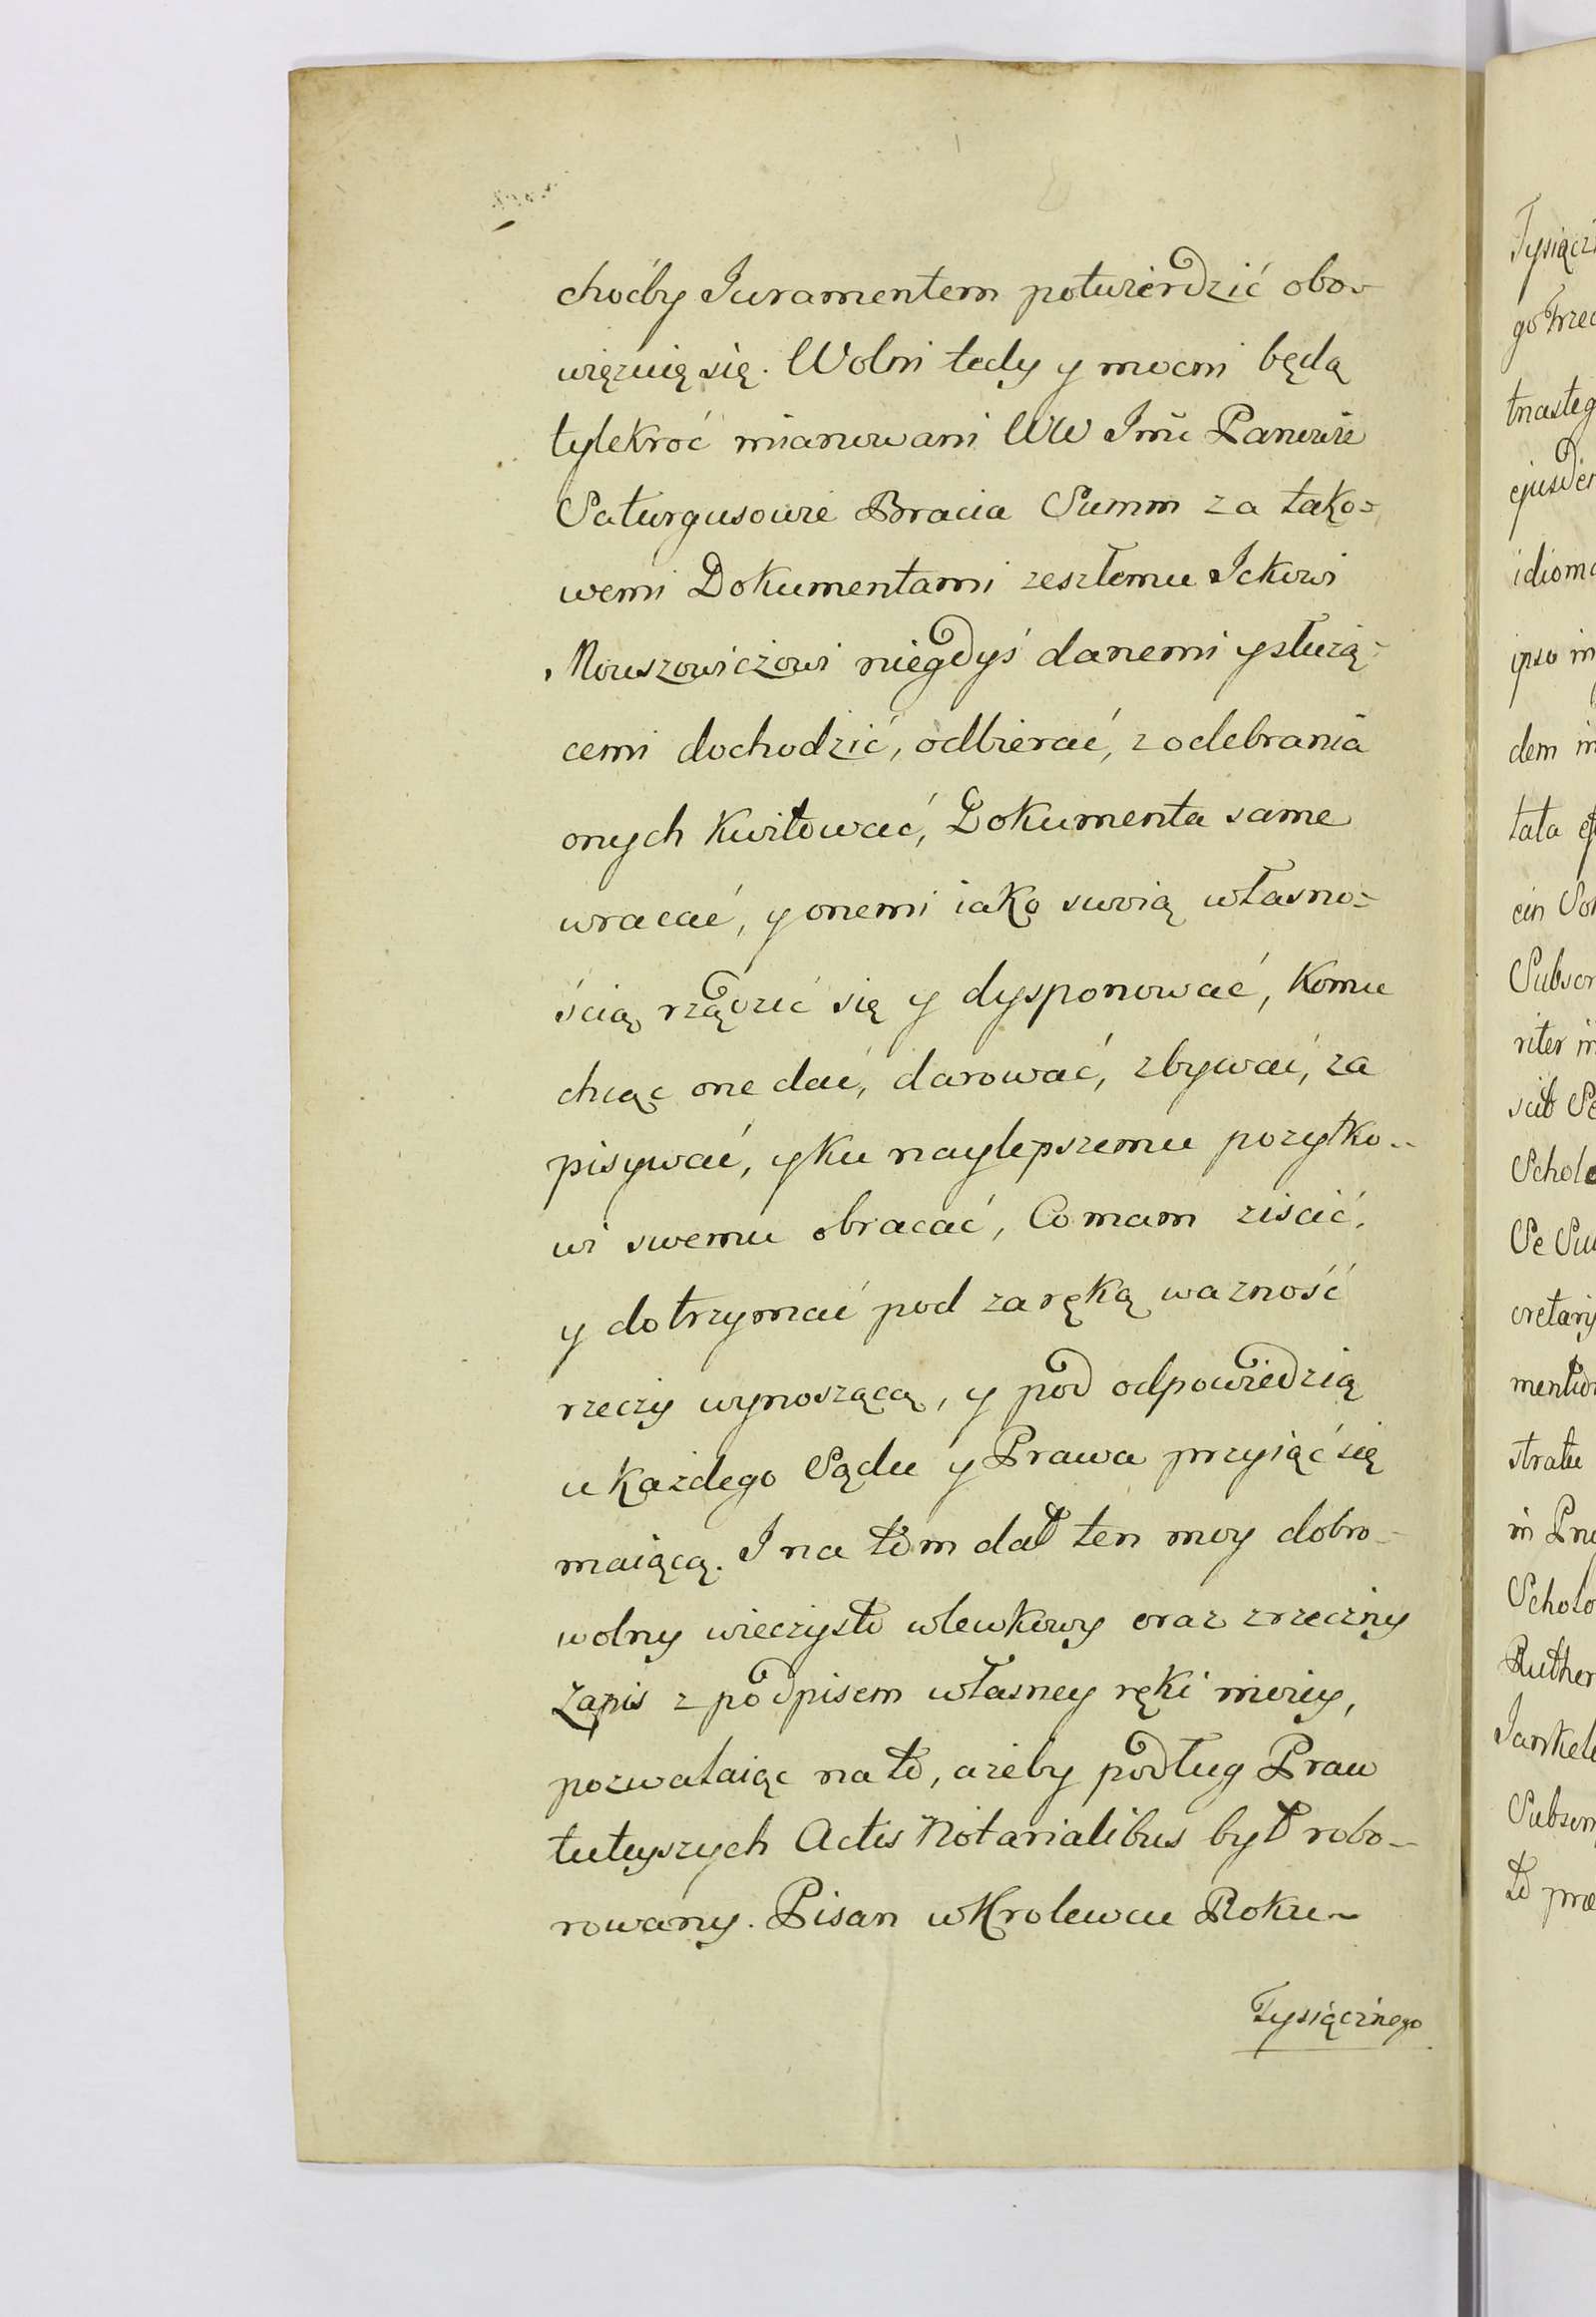 choćby Juramentem potwierdzić obo-
więzuię się. Wolni tedy y mocni będą
tylekroć mianowani WW Imć Panowie
Saturgusowie Bracia Summ za tako-
wemi Dokumentami zeszłemu Ickowi
Mowszowiczowi niegdyś danemi y służą-
cemi dochodzić, odbierać, z odebrania
onych kwitować, Dokumenta same
wracać, y onemi iako swoią własno-
ścią rządzić się y dysponować, komu
chcąc one dać, darować, zbywać, za
pisywać, y ku naylepszemu pozytko-
wi swemu obracać, Co mam ziscić,
y dotrzymać pod zaręką wazność
rzeczy wynoszącą, y pod odpowiedzią
u każdego Sądu y Prawa przyiąć się
maiącą. I na tom dał ten moy dobro-
wolny wieczysto wlewkowy oraz zrzeczny
Zapis z podpisem własney ręki moiey,
pozwalaiąc na to, ażeby podług Praw
tuteyszych Actis Notarialibus był robo-
rowany. Pisan w Krolewcu Roku
Tysiącznego
Tysiącz
go Trzec
tnasteg
ejusdem
idioma
ipso in
dem in
tata
cin
Subscr
riter in
sub Se
Schol
Se Su
cretary
mento
stratu
in
Scholo
Ruthen
Jankel
Subscr
to præ